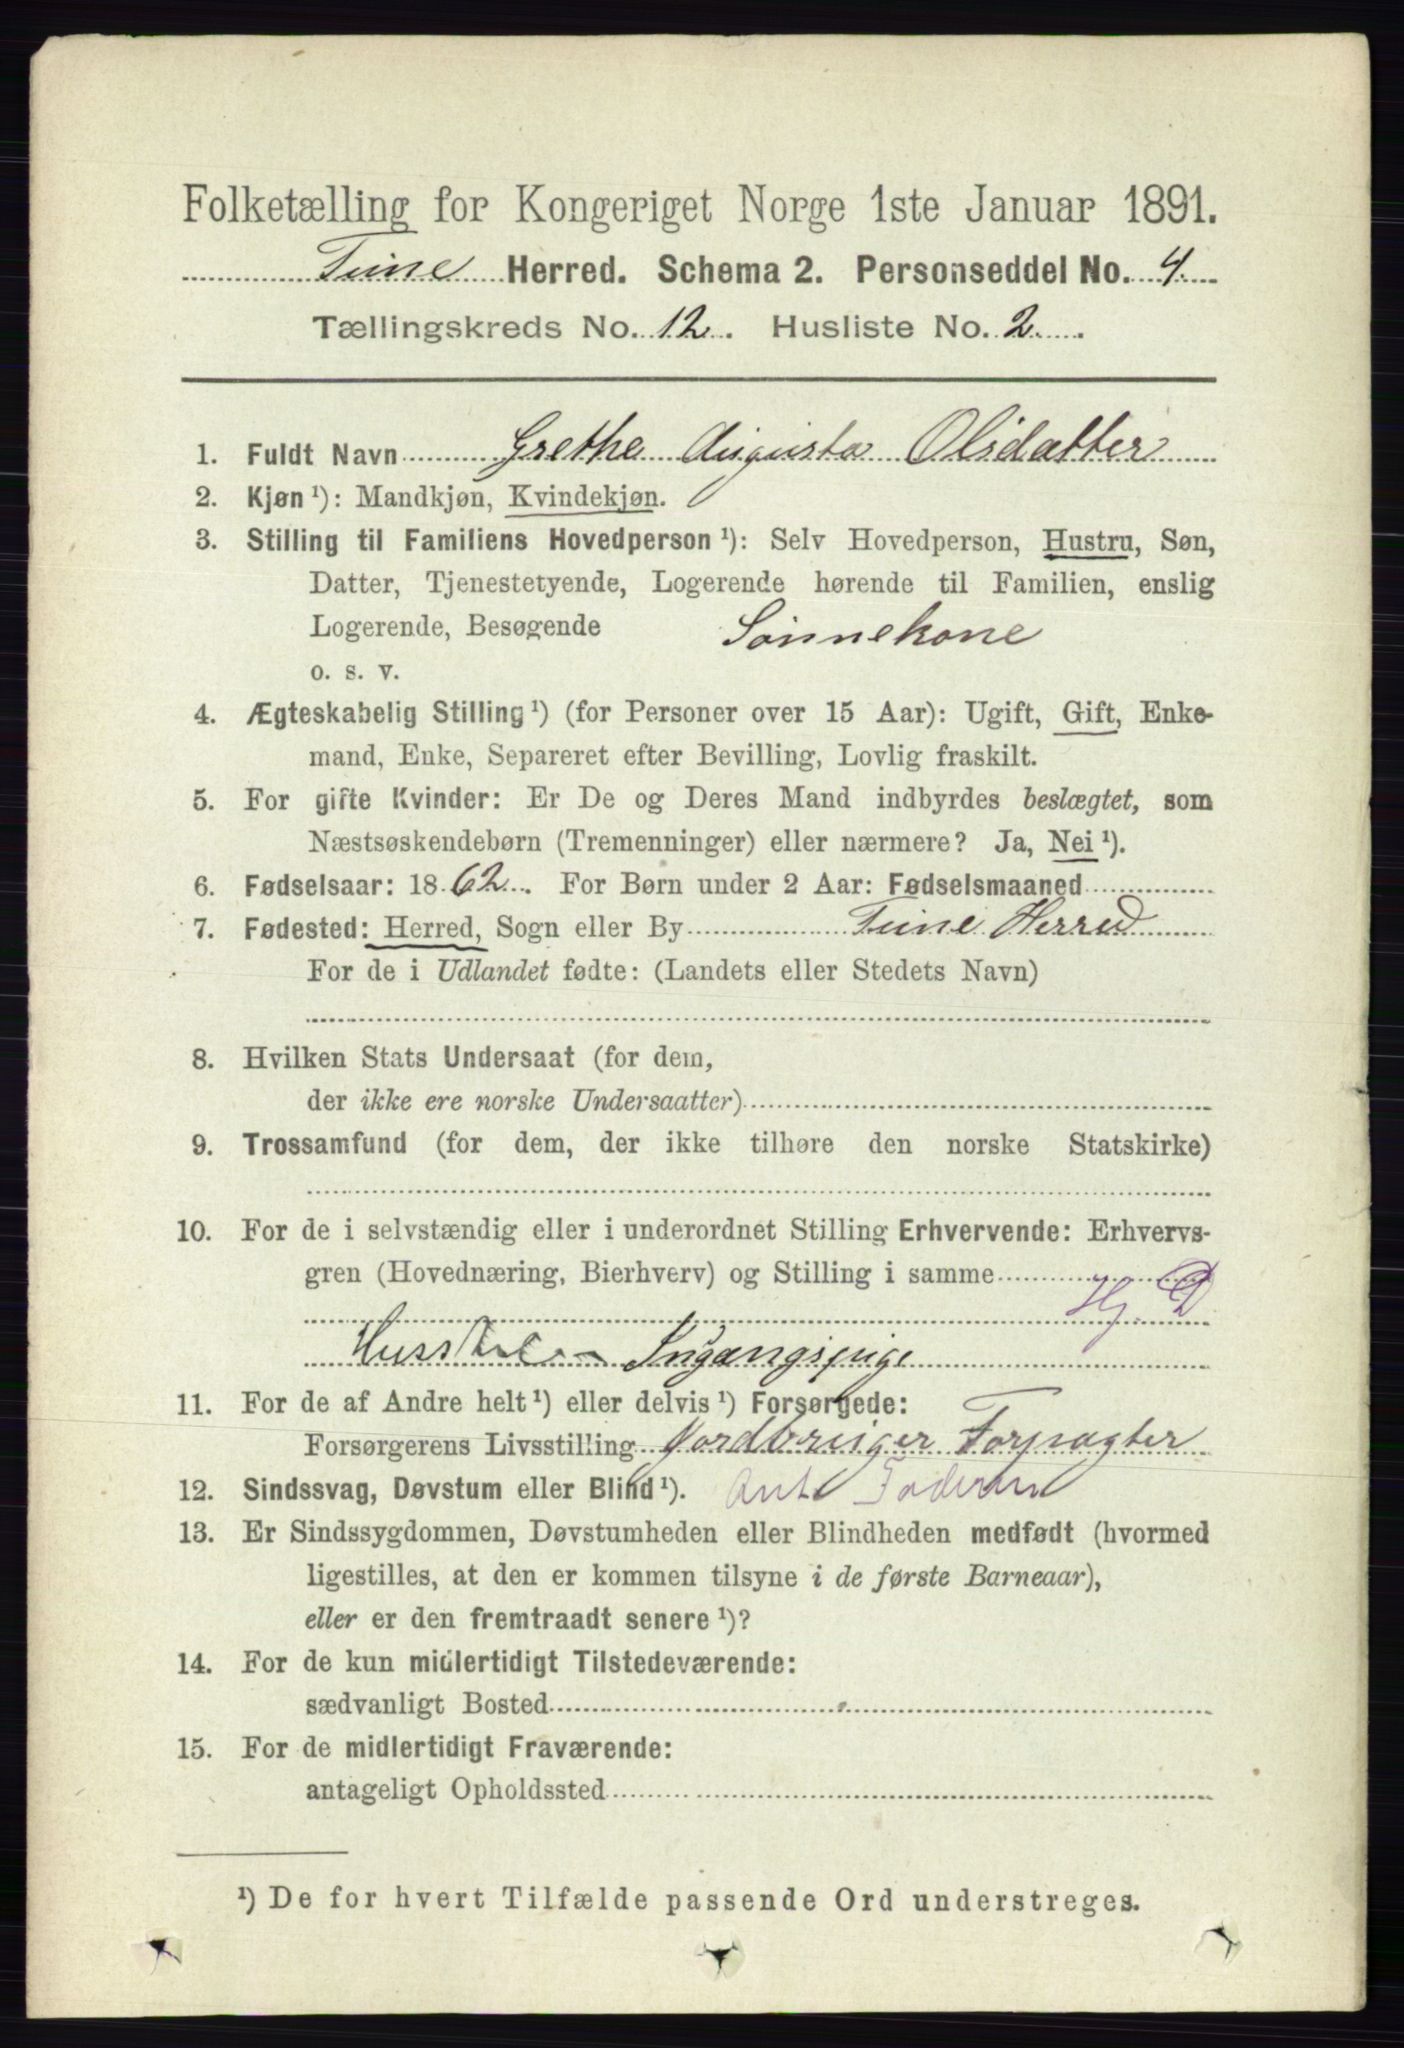 Folketælling for Kongeriget Norge 1ste Januar 1891.
Tune Herred. Schema 2. Personseddel No. 4.
Tællingskreds No. 12. Husliste No. 2.
1. Fuldt Navn Grethe Augusta Olsdatter
2. Kjøn ¹): Mandkjøn, Kvindekjøn.
3. Stilling til Familiens Hovedperson ¹): Selv Hovedperson, Hustru, Søn,
Datter, Tjenestetyende, Logerende hørende til Familien, enslig
Logerende, Besøgende Sønnekone
o. s. v.
4. Ægteskabelig Stilling ¹) (for Personer over 15 Aar): Ugift, Gift, Enke-
mand, Enke, Separeret efter Bevilling, Lovlig fraskilt.
5. For gifte Kvinder: Er De og Deres Mand indbyrdes beslægtet, som
Næstsøskendebørn (Tremenninger) eller nærmere? Ja, Nei ¹).
6. Fødselsaar: 1862. For Børn under 2 Aar: Fødselsmaaned
7. Fødested: Herred, Sogn eller By Tune Herred
For de i Udlandet fødte: (Landets eller Stedets Navn)
8. Hvilken Stats Undersaat (for dem,
der ikke ere norske Undersaatter)
9. Trossamfund (for dem, der ikke tilhøre den norske Statskirke)
10. For de i selvstændig eller i underordnet Stilling Erhvervende: Erhvervs-
gren (Hovednæring, Bierhverv) og Stilling i samme
Hj. D
11. For de af Andre helt ¹) eller delvis ¹) Forsørgede:
Forsørgerens Livsstilling Jordbruger Forpagter
12. Sindssvag, Døvstum eller Blind ¹).
13. Er Sindssygdommen, Døvstumheden eller Blindheden medfødt (hvormed
ligestilles, at den er kommen tilsyne i de første Barneaar),
eller er den fremtraadt senere ¹)?
14. For de kun midlertidigt Tilstedeværende:
sædvanligt Bosted
15. For de midlertidigt Fraværende:
antageligt Opholdssted
¹) De for hvert Tilfælde passende Ord understreges.